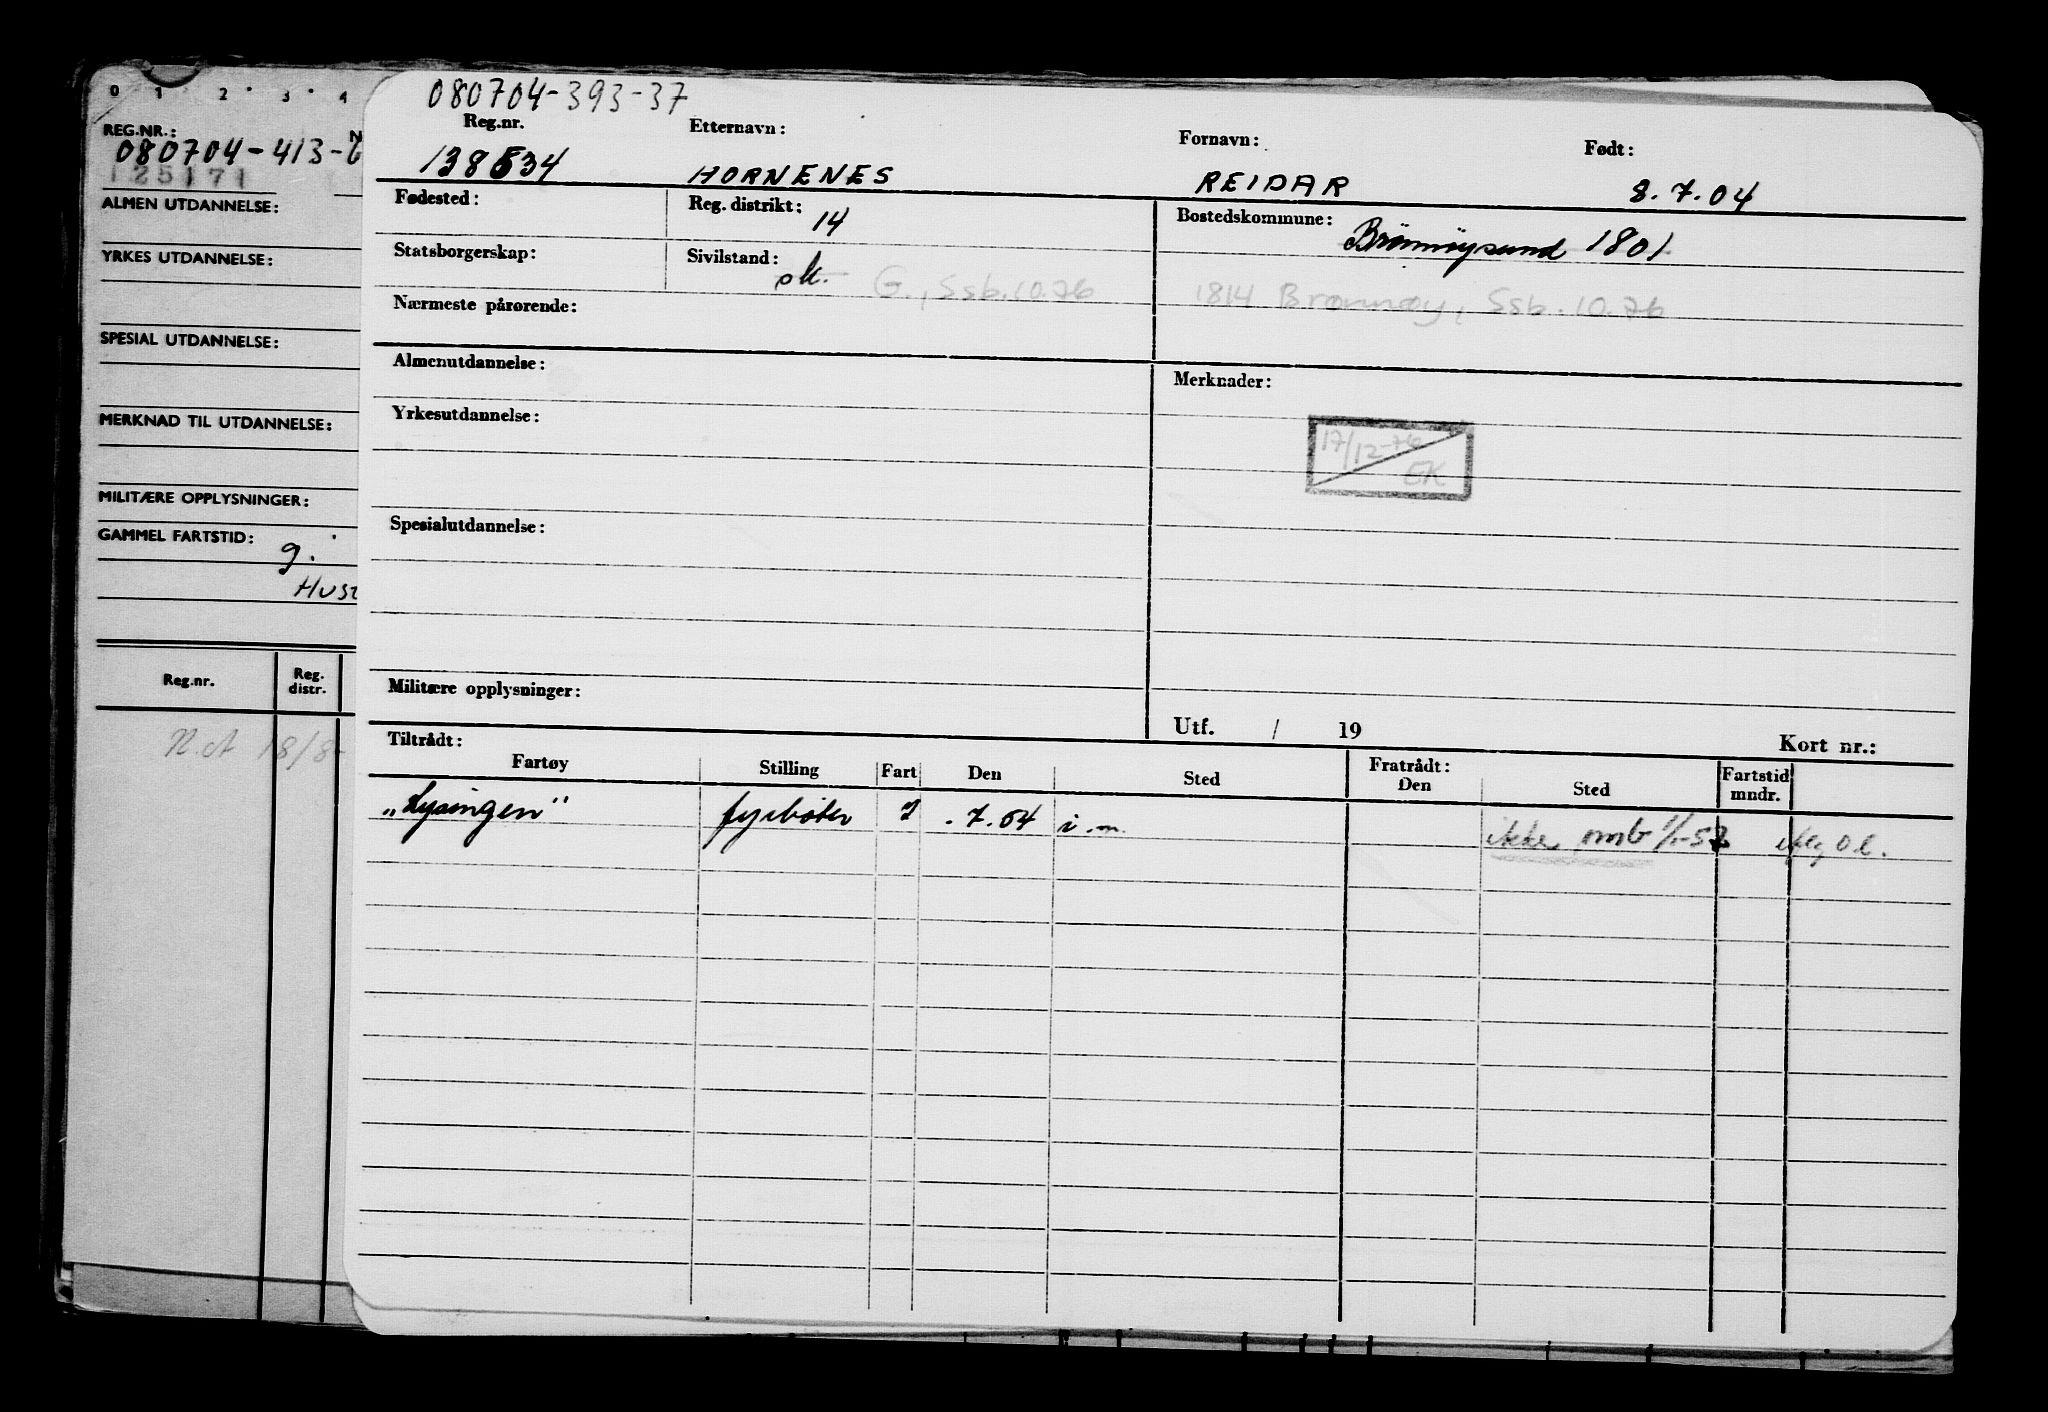 0 1 2 3 4
REG.NR.:
080704-413-
125171
ALMEN UTDANNELSE:
YRKES UTDANNELSE:
SPESIAL UTDANNELSE:
MERKNAD TIL UTDANNELSE:
MILITÆRE OPPLYSNINGER:
GAMMEL FARTSTID:
g.
Reg.nr. Reg. distr.
18/8-
080704-393-37
Reg.nr. Etternavn: Fornavn: Født:
138534 HORNENES REIDAR 8.7.04
Fødested: Reg. distrikt: 14 Bostedskommune: Brønnøysund 1801
Statsborgerskap: Sivilstand: G., Ssb.10.76 1814 Brønnøy, Ssb.10.76
Nærmeste pårørende:
Almenutdannelse: Merknader:
Yrkesutdannelse:
17/12-76
EK
Spesialutdannelse:
Militære opplysninger:
Utf. / 19 Kort nr.:
Tiltrådt: Fratrådt:
Fartøy Stilling Fart Den Sted Den Sted Fartstid mndr.
"Lysingen" fyrbøter .7.54 i.m. ikke omb 1/1-57